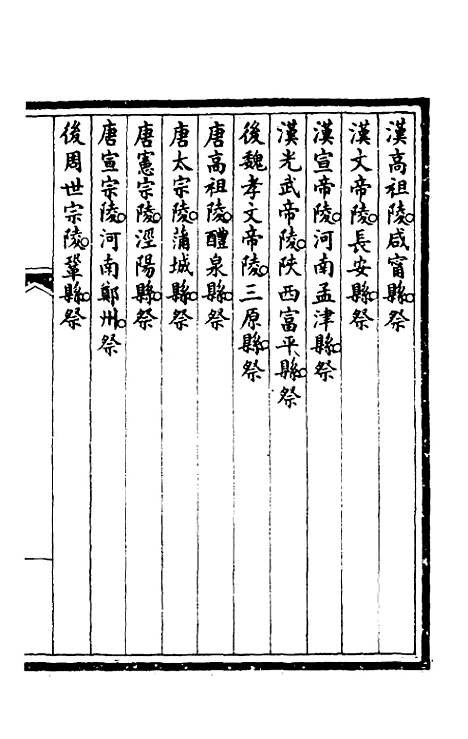 漢高祖陵咸甯縣祭
漢文帝陵長安縣祭
漢宣帝陵河南孟津縣祭
漢光武帝陵陝西富平縣祭
後魏孝文帝陵三原縣祭
唐高祖陵醴泉縣祭
唐太宗陵蒲城縣祭
唐憲宗陵涇陽縣祭
唐宣宗陵河南鄭州祭
後周世宗陵鞏縣祭